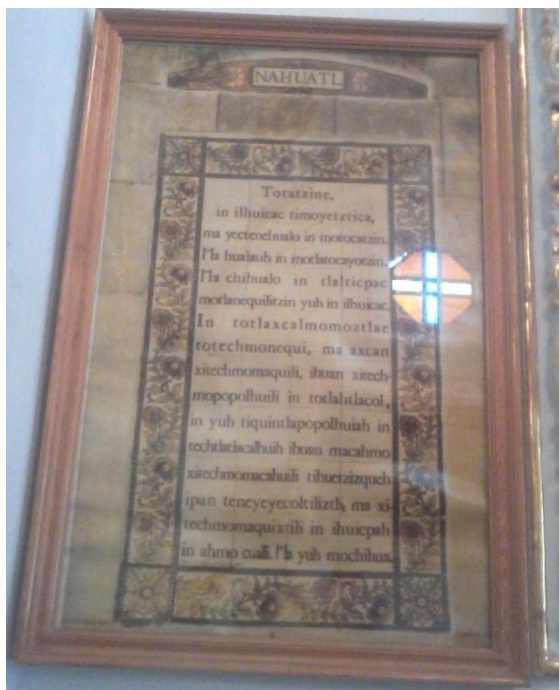 NAHUATL
Totatzine,
in ilhuicac timoyetztica,
ma yectenehualo in motocatzin.
Ma hualauh in motlatocayotzin.
Ma chihualo in tlalticpac
motlanequilitzin yuh in ilhuicac.
In totlaxcalmomoztlae
totechmonequi, ma axcan
xitechmomaquili, ihuan xitech-
mopopolhuili in totlahtlacol,
in yuh tiquintlapopolhuiah in
techtlatlacalhuih ihuan macahmo
xitechmomacahuili tihuetzizqueh
ipan teneyeyecoltiliztli, ma xi-
techmomaquixtili in ihuicpah
in ahmo cualli. Ma yuh mochihua.